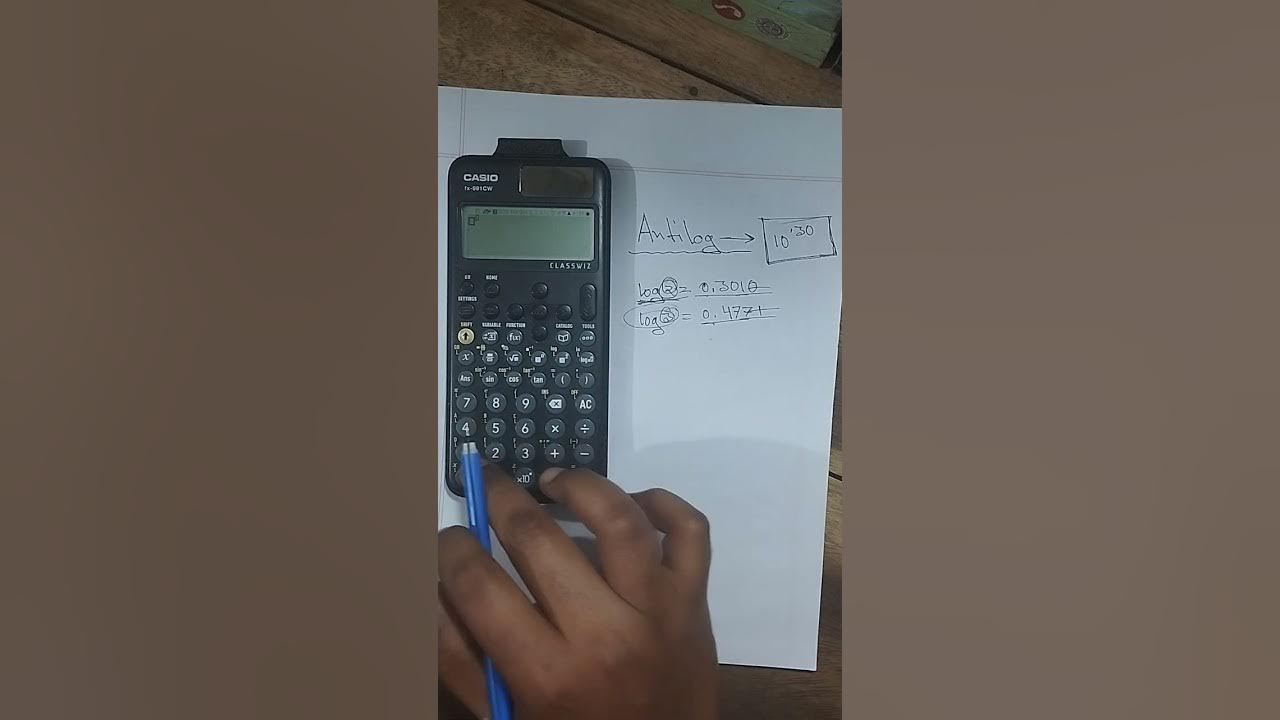 CASIO
fx-991CW
CLASSWIZ
Antilog → 10^.30
log(2) = 0.3010
log(3) = 0.4771
HOME
SETTINGS
SHIFT VARIABLE FUNCTION CATALOG TOOLS
x f(x)
sin⁻¹ cos⁻¹ tan⁻¹
Ans sin cos tan ( )
INS OFF
7 8 9 AC
4 5 6 × ÷
2 3 + −
×10ˣ